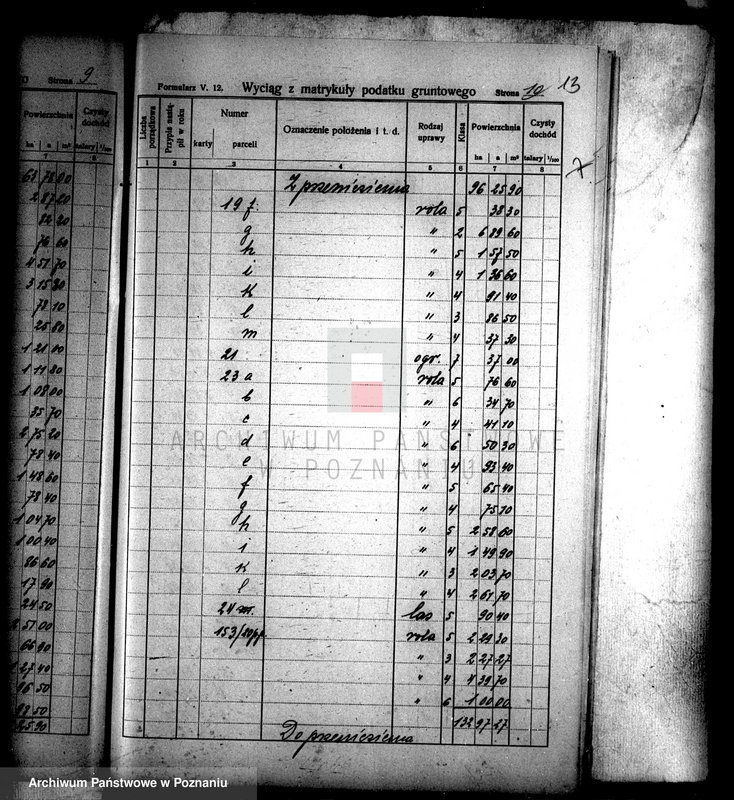 Strona 9
Powierzchnia
Czysty dochód
ha a m² talary 1/100
7 8
61 78 00
2 87 20
82 20
76 60
4 51 70
3 15 30
78 10
25 80
1 21 00
1 11 80
1 08 00
35 70
2 75 20
78 40
1 48 60
78 40
1 04 70
1 00 40
86 60
17 90
24 50
2 51 00
66 90
1 27 40
96 50
93 50
25 90
Formularz V. 12. Wyciąg z matrykuły podatku gruntowego Strona 10 13
Liczba porządkowa
Przypis nastąpił w roku
Numer
karty parceli
Oznaczenie położenia i t. d.
Rodzaj uprawy
Klasa
Powierzchnia
ha a m²
Czysty dochód
talary 1/100
1 2 3 4 5 6 7 8
Z przeniesienia 96 25 90
19 f. rola 5 38 30
g " 2 6 89 60
h " 5 1 57 50
i " 4 1 36 60
k " 4 91 40
l " 3 86 50
m " 4 37 30
21 ogr. 7 37 00
23 a rola 5 76 60
b " 6 34 70
c " 4 41 10
d " 6 50 30
e " 4 93 40
f " 5 65 40
g " 4 75 10
h " 5 2 58 60
i " 4 1 49 90
k " 3 2 03 70
l " 4 2 61 70
24 las 5 90 40
153/10 pp. rola 5 2 29 30
" 3 2 27 27
" 4 4 39 70
" 6 1 00 00
132 97 27
Do przeniesienia
ARCHIWUM PAŃSTWOWE
W POZNANIU
Archiwum Państwowe w Poznaniu